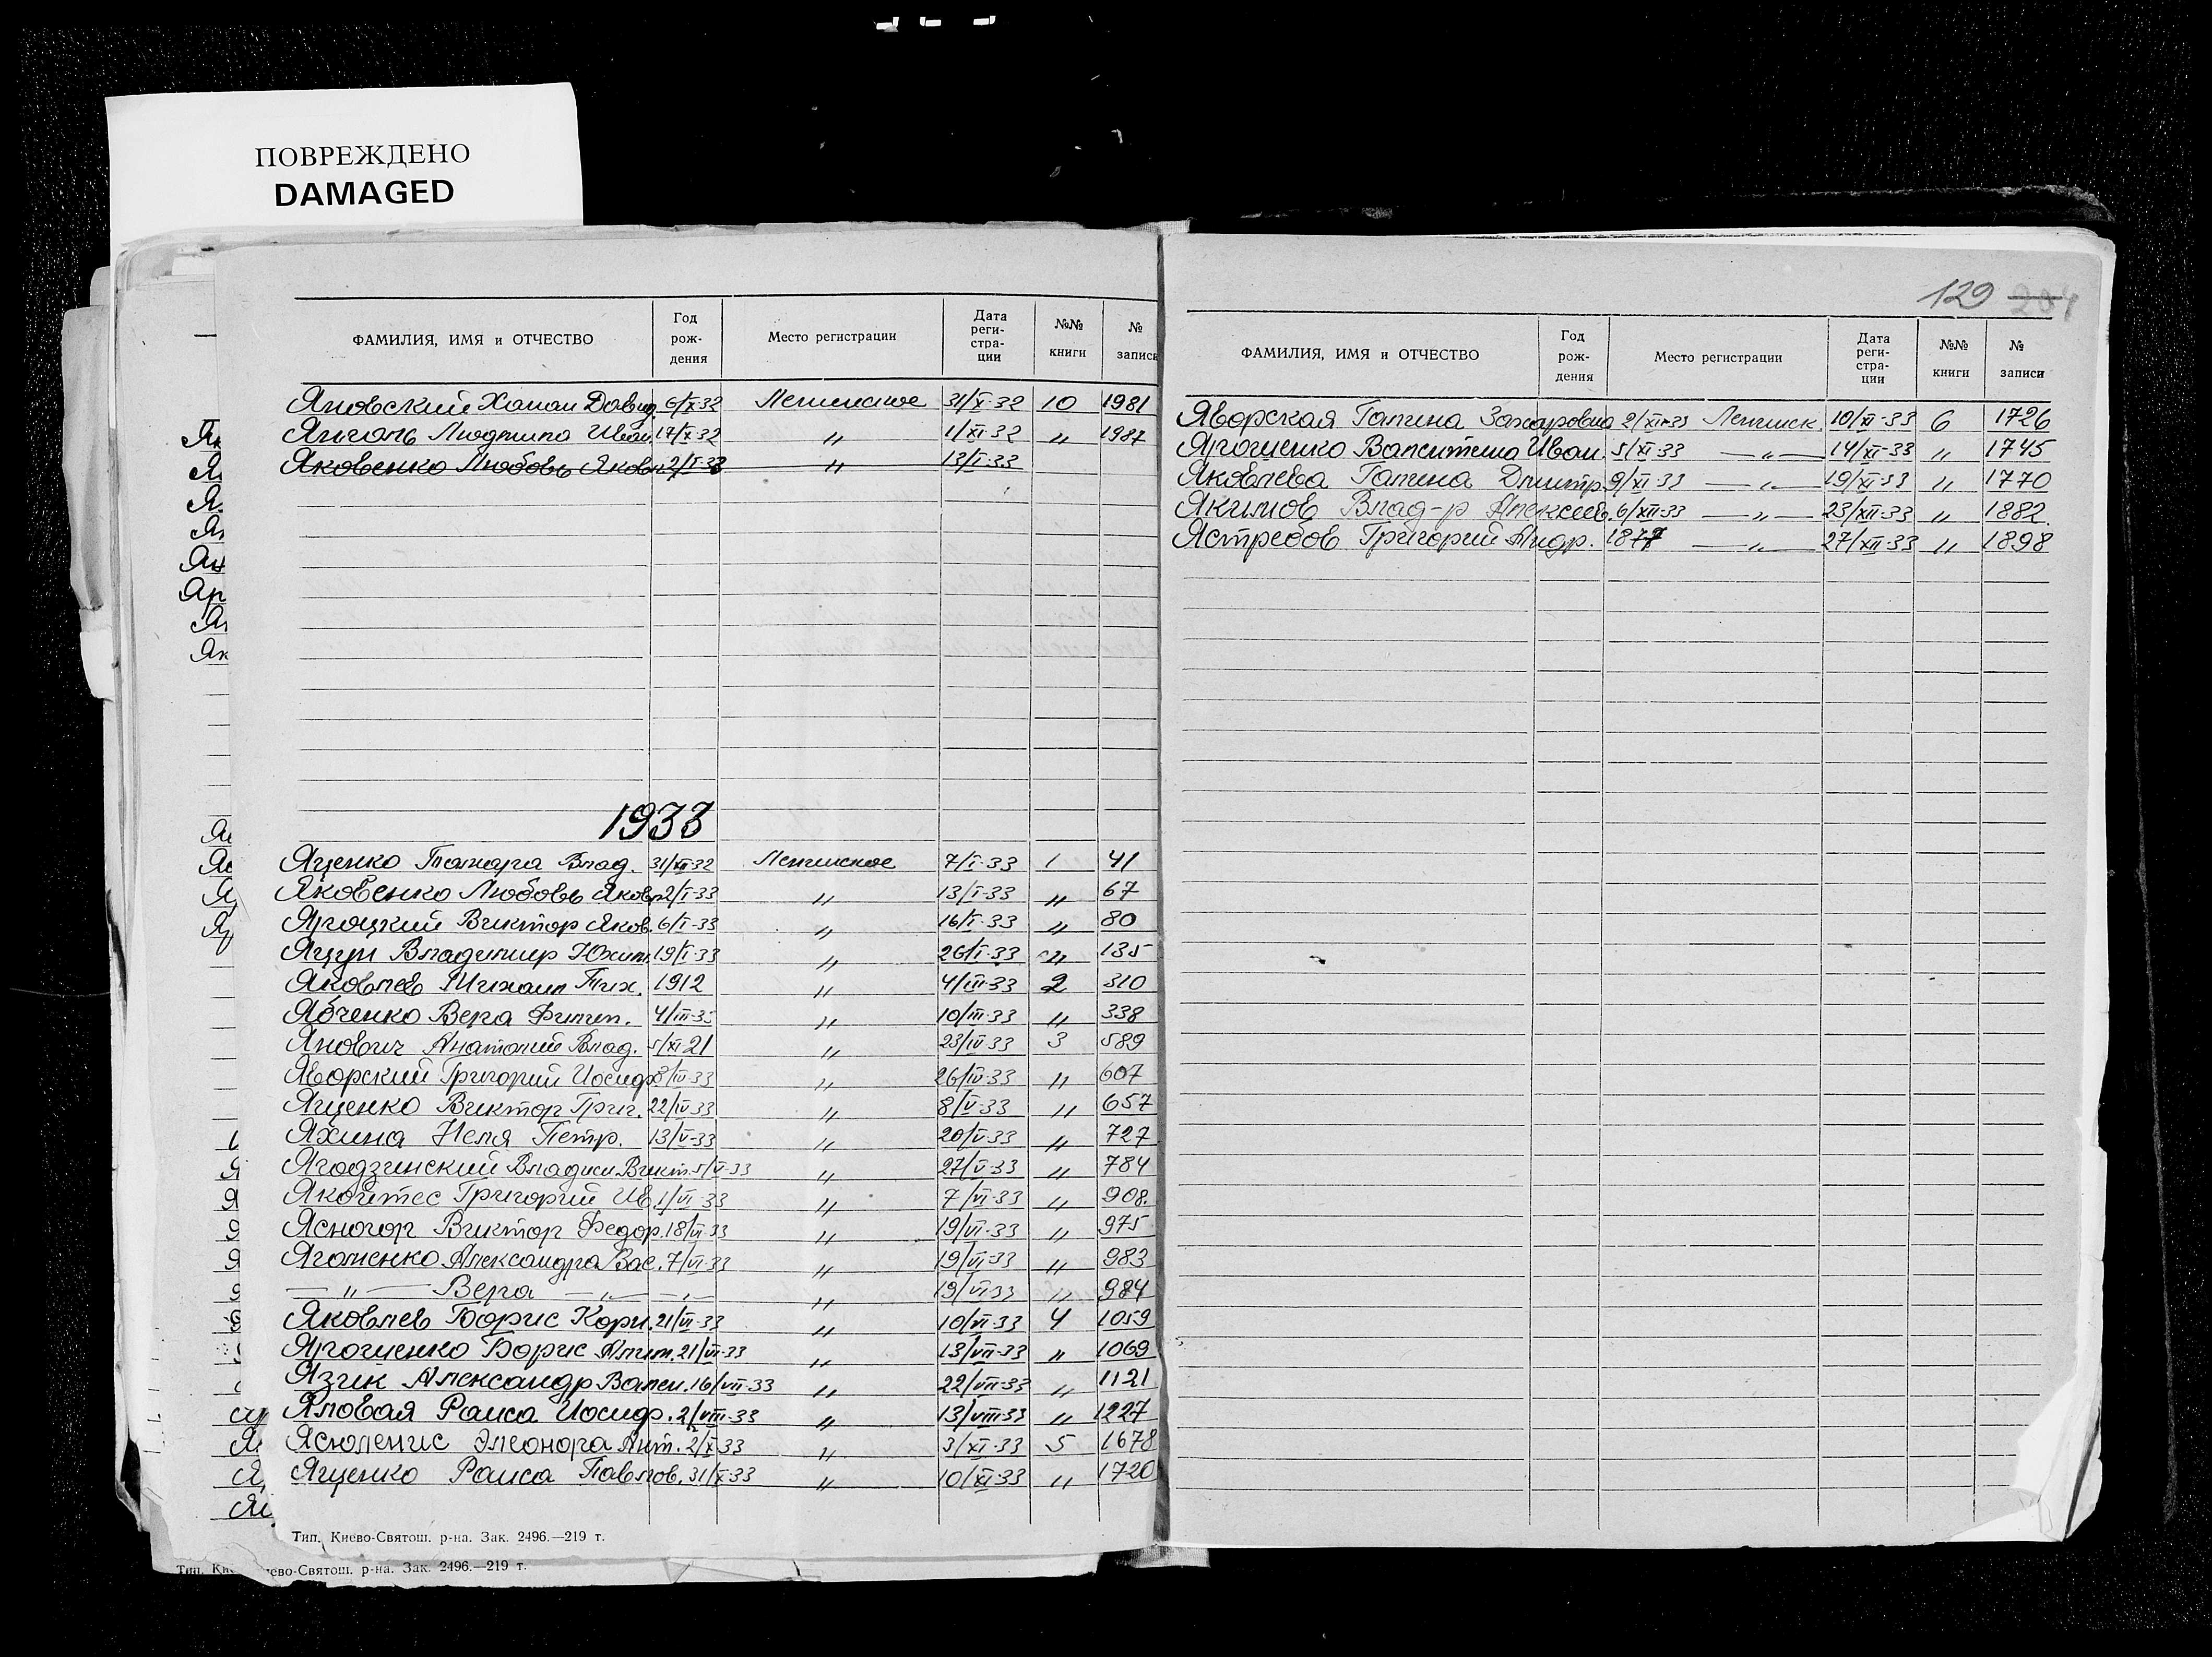 ПОВРЕЖДЕНО
DAMAGED
ФАМИЛИЯ, ИМЯ и ОТЧЕСТВО Год рождения Место регистрации Дата регистрации №№ книги № записи
Яновский Хаман Давид. 6/X-32 Ленинское 31/X-32 10 1981
Янголь Людмила Иван. 17/X-32 〃 1/XI-32 〃 1987
Яковенко Любовь Яковл. 2/I-33 〃 13/I-33
1933
Яценко Тамара Влад. 31/XII-32 Ленинское 7/I-33 1 41
Яковенко Любовь Яковл. 2/I-33 〃 13/I-33 〃 67
Яроцкий Виктор Яков. 6/I-33 〃 16/I-33 〃 80
Яцун Владимир Юхим. 19/I-33 〃 26/I-33 〃 135
Яковлев Михаил Тих. 1912 〃 4/III-33 2 310
Ябченко Вера Филип. 4/III-33 〃 10/III-33 〃 338
Янович Анатолий Влад. 5/XI 21 〃 23/IV-33 3 589
Яворский Григорий Иосиф. 8/IV-33 〃 26/IV-33 〃 607
Яценко Виктор Григ. 22/IV-33 〃 8/V-33 〃 657
Яхина Неля Петр. 13/V-33 〃 20/V-33 〃 727
Ягодзинский Владисл. Викт. 5/V-33 〃 27/V-33 〃 784
Якойтес Григорий Ив. 1/VI-33 〃 7/VI-33 〃 908.
Ясногор Виктор Федор. 18/VI-33 〃 19/VI-33 〃 975
Ягоменко Александра Вас. 7/VI-33 〃 19/VI-33 〃 983
— 〃 — Вера — 〃 — — 〃 — 〃 19/VI 33 〃 984
Яковлев Борис Корн. 21/VI-33 〃 10/VI-33 4 1059
Ярошенко Борис 21/VI-33 〃 13/VII-33 〃 1069
Язик Александр Вален. 16/VII-33 〃 22/VII-33 〃 1121
Яловая Раиса Иосиф. 2/VIII-33 〃 13/VIII-33 〃 1227
Ясюленис Элеонора Ант. 2/X-33 〃 3/XI-33 5 1678
Яценко Раиса Павлов. 31/X-33 〃 10/XI-33 〃 1720
Тип. Киево-Святош. р-на. Зак. 2496.—219 т.
ево-Святош. р-на. Зак. 2496.—219 т.
129 204
ФАМИЛИЯ, ИМЯ и ОТЧЕСТВО Год рождения Место регистрации Дата регистрации №№ книги № записи
Яворская Галина Захаровна 2/XI-33 Ленинск. 10/XI-33 6 1726
Ярошенко Валентина Иван. 5/XI-33 — 〃 — 14/XI-33 〃 1745
Яковлева Галина Дмитр. 9/XI-33 — 〃 — 19/XI-33 〃 1770
Якимов Влад-р Алексеев. 6/XII-33 — 〃 — 23/XII-33 〃 1882
Ястребов Григорий Андр. 1877 — 〃 — 27/XII-33 〃 1898